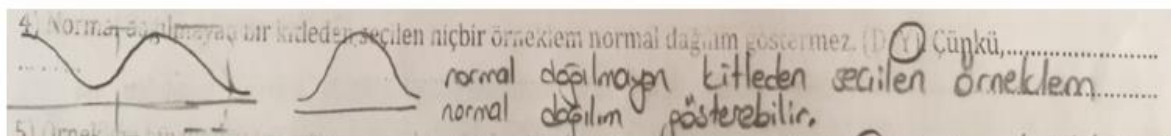 4) Normal dağılmayan bir kitleden seçilen hiçbir örneklem normal dağılım göstermez. (D/Y) Çünkü,....................
normal dağılmayan kitleden seçilen örneklem
normal dağılım gösterebilir.
5)